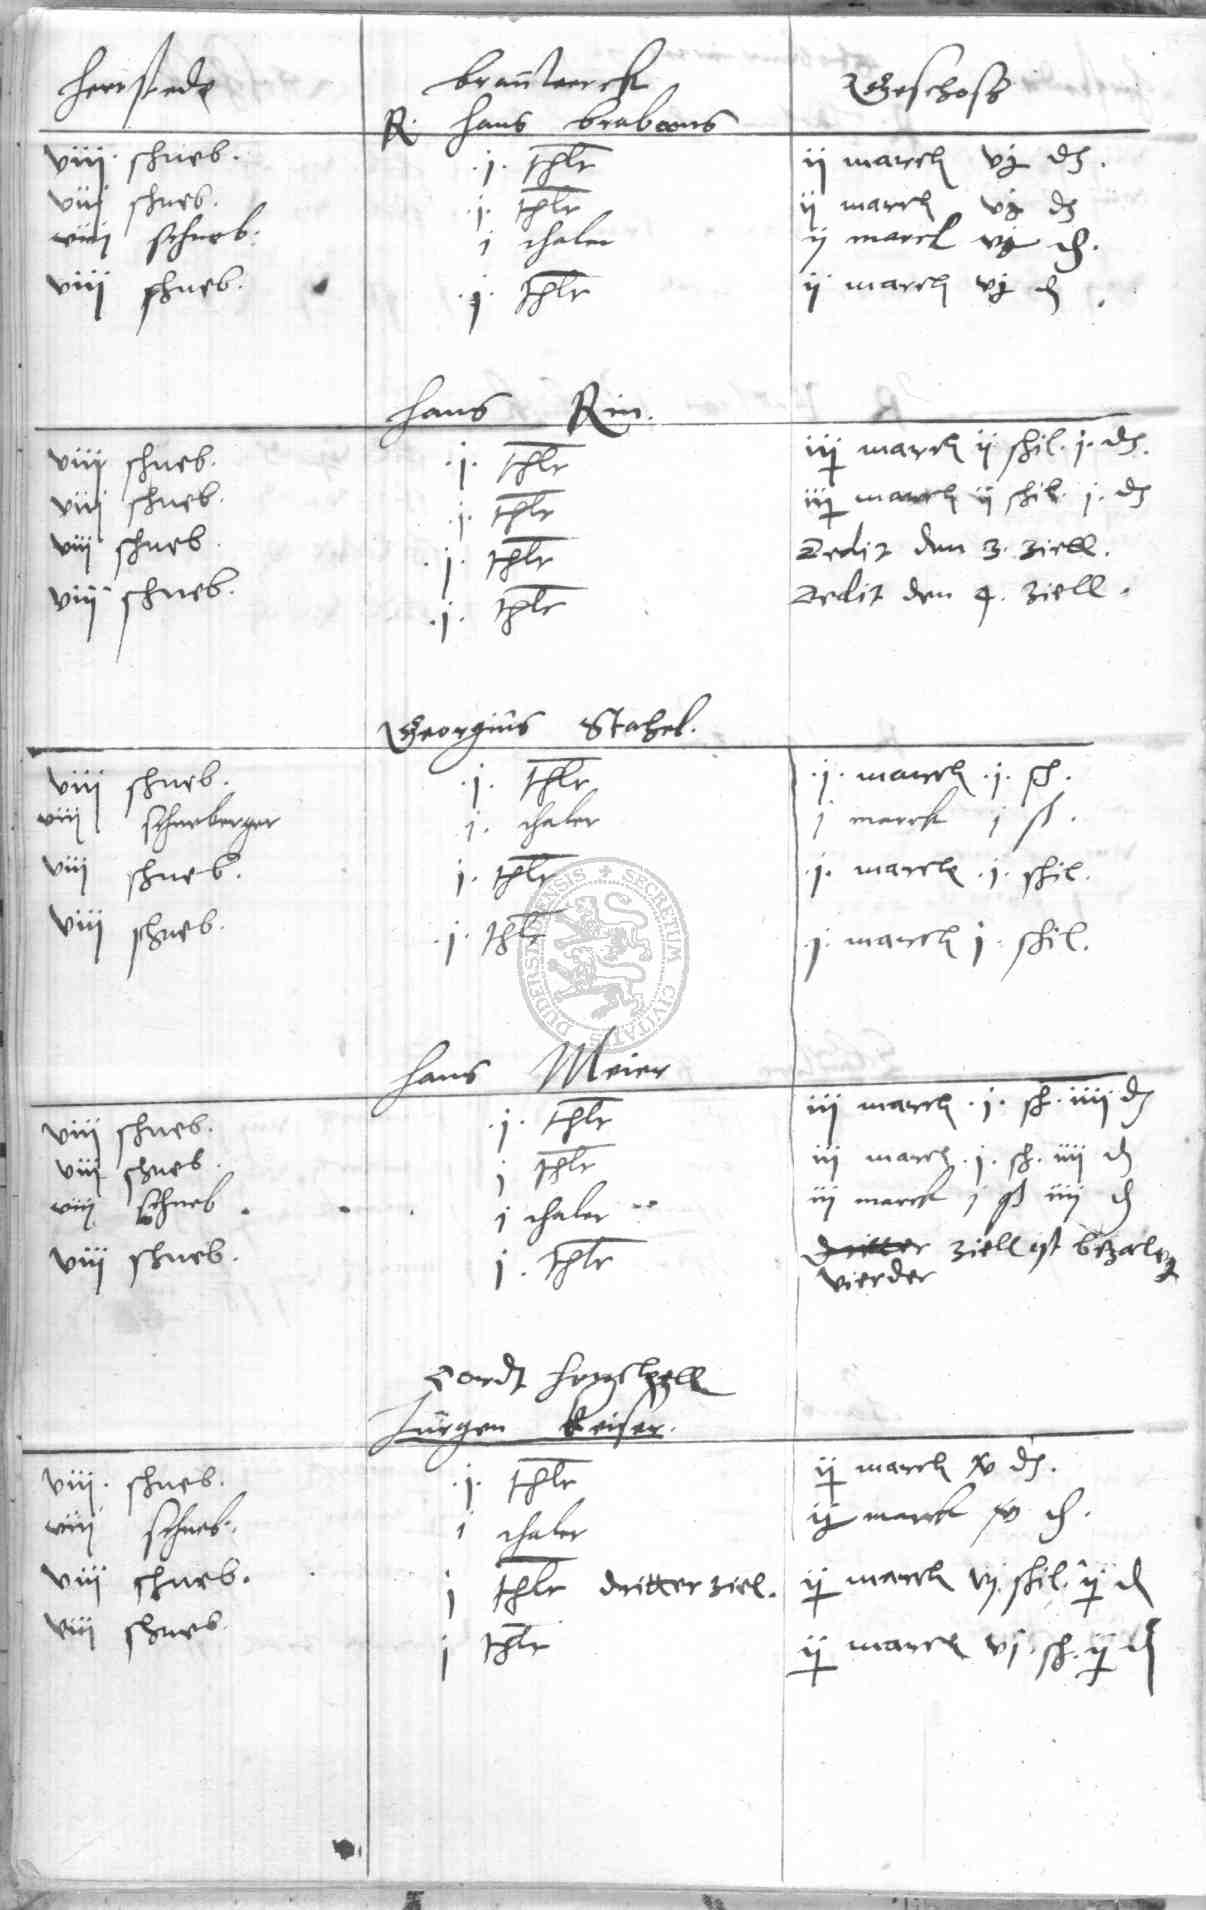 herstede brannwerck Geschoß
R. hans brabants
viii. schneb. .j. thlr ij marck vj d.
viij schneb. .j. thlr ij marck vj d
viij schneb. j thaler ij marck vj d.
viij schneb. .j. thlr ij marck vj d.
hans Rin.
viij schneb. .j. thlr iij marck ij schil. j. d.
viij schneb. .j. thlr iij marck ij schil. j. d
viij schneb. .j. thlr Dedit den 3. ziell.
viij schneb. .j. thlr Dedit den 4. ziell.
Georgius Stahel.
viij schneb. .j. thlr .j. marck .j. sch.
viij schneberger j. thaler j marck j ß.
viij schneb. j. thlr .j. marck .j. schil.
viij schneb. .j. thlr .j. marck j. schil.
hans Meier
viij schneb. .j. thlr iij marck .j. sch. iiij d
viij schneb. j thlr iij marck .j. sch. iiij d
viij schneb. j thaler iij marck j ß iiij d
viij schneb. j. thlr dritter ziell ist bezalt
vierder
Cordt
Jurgen Keiser.
viij. schneb. .j. thlr ij marck xv d.
viij schneb. j thaler ij marck xv d.
viij schneb. j thlr dritter ziel. ij marck vj. schil. ij d
viij schneb. j thlr ij marck vj. sch. ij d
DUDERSTADENSIS + SECRETUM CIVITATIS